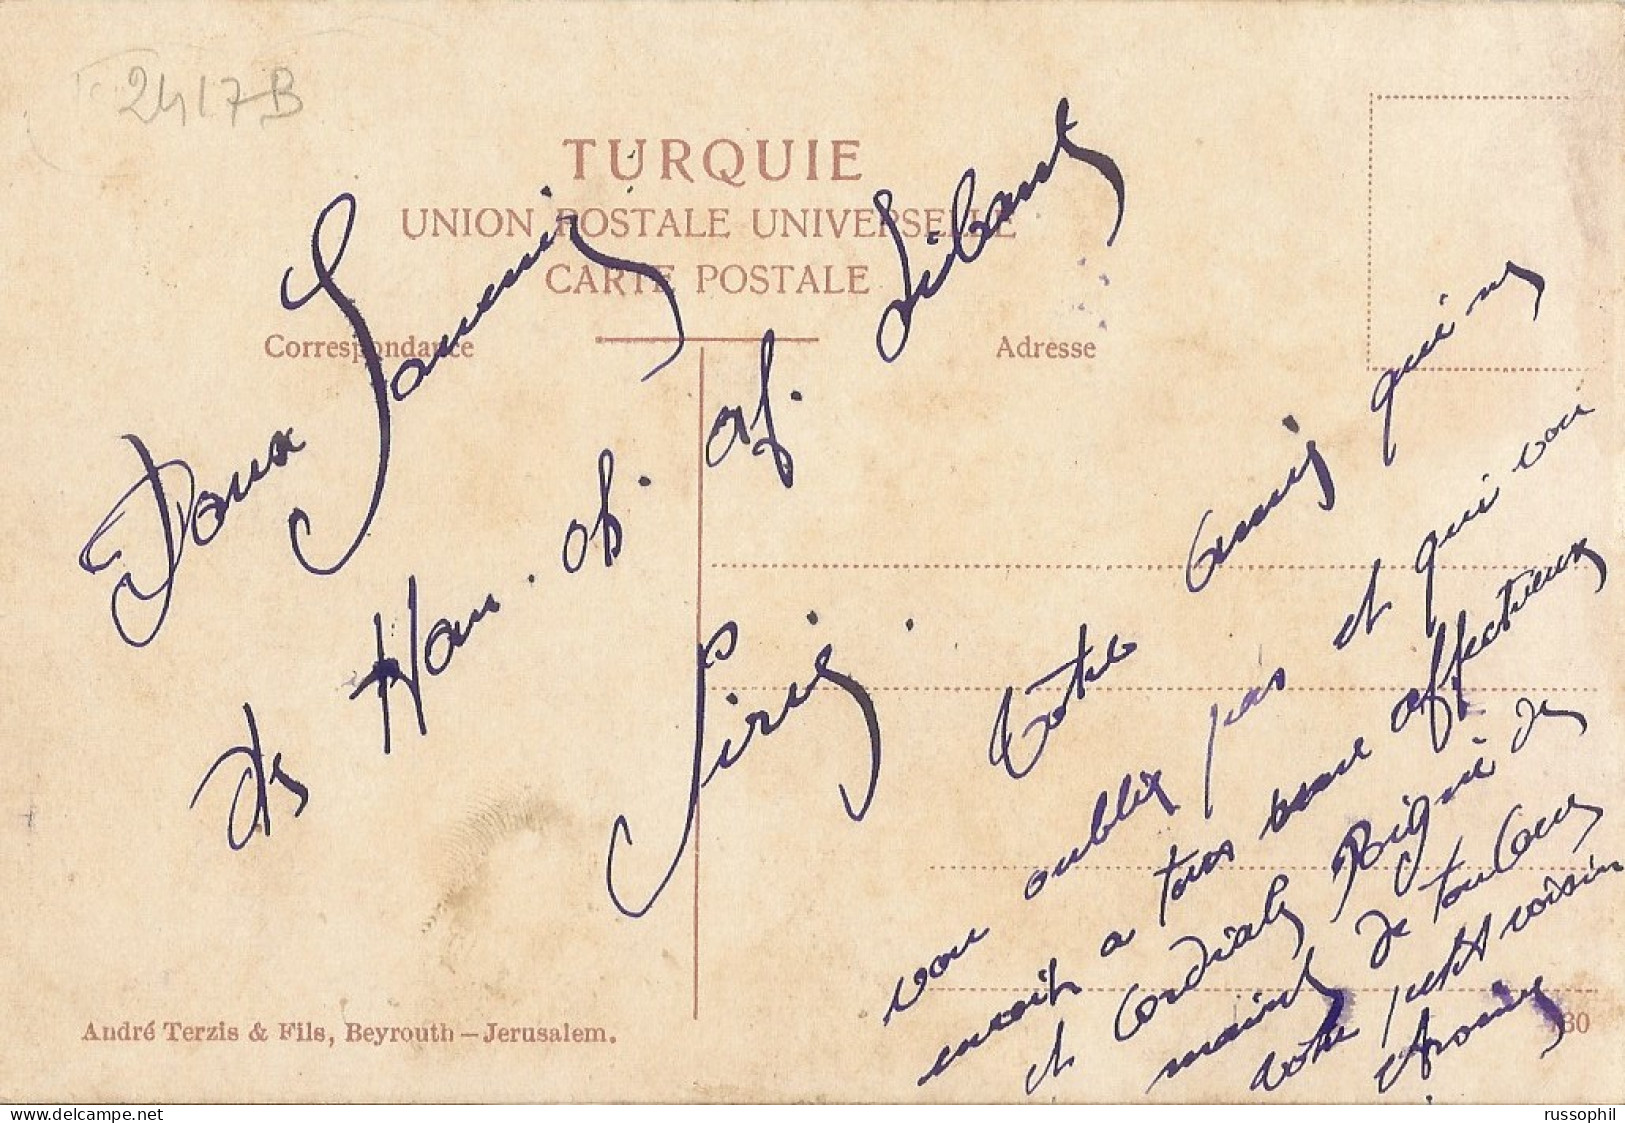 2417B
TURQUIE
UNION POSTALE UNIVERSELLE
CARTE POSTALE
Correspondance
Adresse
Doux Souvenir
de
Libant
Sirie.
Votre amis qui ne
vou oublix pas et qui vou
envoit a tous affectueux
et Cordials Poigné de
maint de toulons
votre petit voisin
André Terzis & Fils, Beyrouth — Jerusalem.